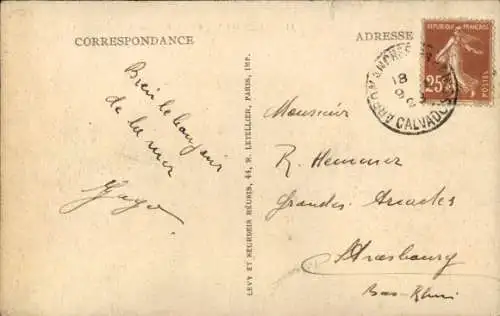 CORRESPONDANCE
ADRESSE
REPUBLIQUE FRANÇAISE
25c
POSTES
18
9
CALVADOS
Bien le bonjour
de la mer
LEVY ET NEURDEIN RÉUNIS, 44, R. LETELLIER, PARIS, IMP.
Monsieur
R.
Grandes Arcades
Strasbourg
Bas-Rhin